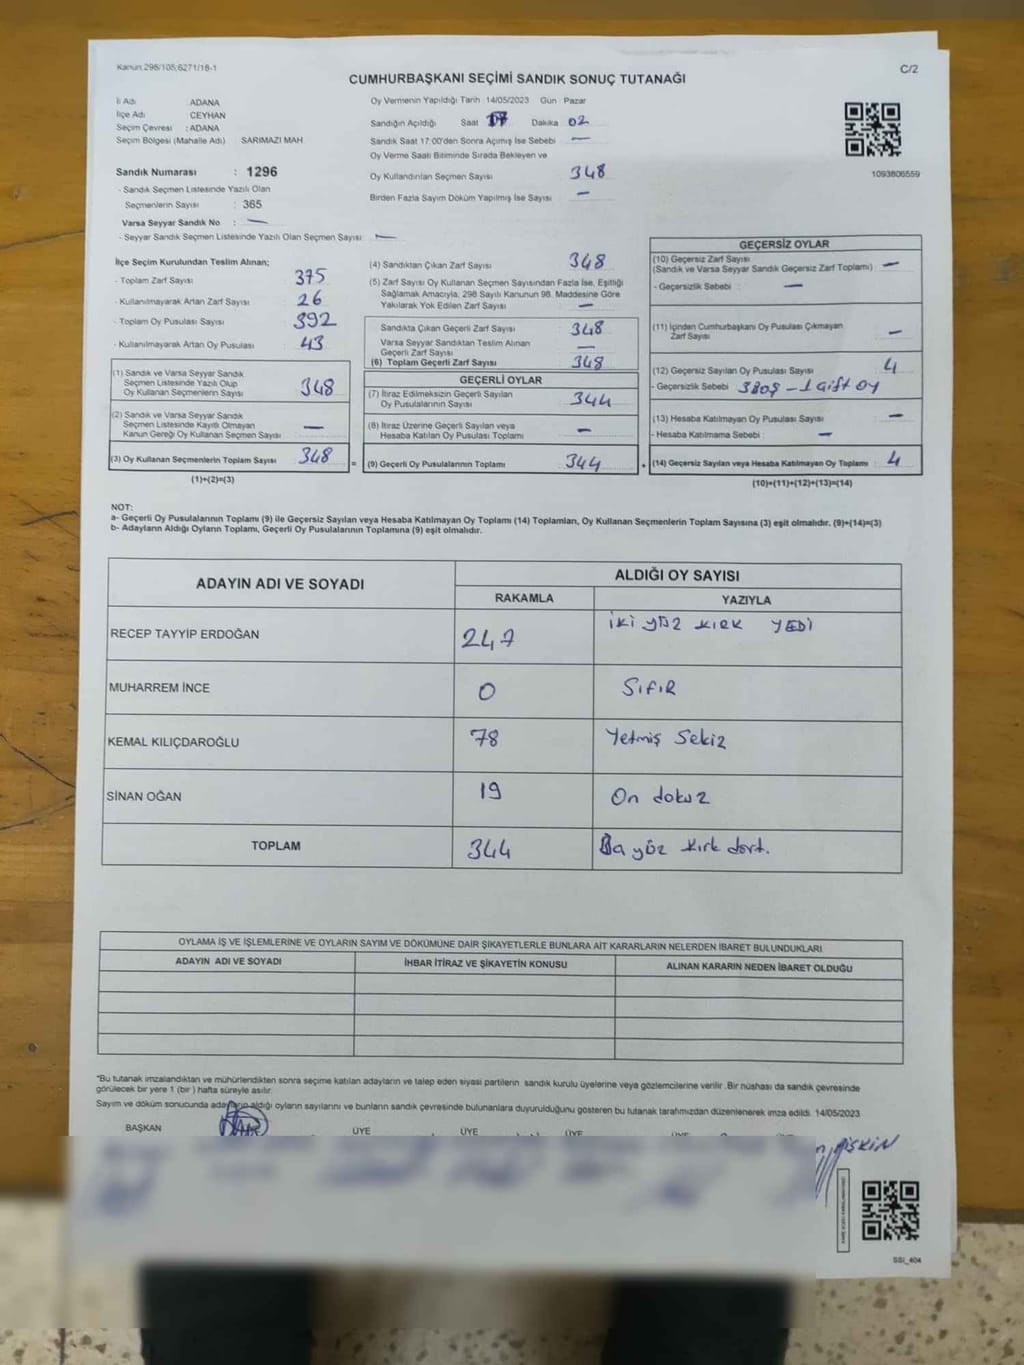 Kanun 298/105,6271/18-1
C/2
CUMHURBAŞKANI SEÇİMİ SANDIK SONUÇ TUTANAĞI
İl Adı : ADANA
İlçe Adı : CEYHAN
Seçim Çevresi : ADANA
Seçim Bölgesi (Mahalle Adı) SARIMAZI MAH
Sandık Numarası : 1296
- Sandık Seçmen Listesinde Yazılı Olan
Seçmenlerin Sayısı : 365
Varsa Seyyar Sandık No : —
- Seyyar Sandık Seçmen Listesinde Yazılı Olan Seçmen Sayısı : —
Oy Vermenin Yapıldığı Tarih 14/05/2023 Gün Pazar
Sandığın Açıldığı Saat 17 Dakika 02
Sandık Saat 17:00'den Sonra Açımış İse Sebebi —
Oy Verme Saati Bitiminde Sırada Bekleyen ve
Oy Kullandırılan Seçmen Sayısı 348
Birden Fazla Sayım Döküm Yapılmış İse Sayısı —
1093806559
İlçe Seçim Kurulundan Teslim Alınan;
- Toplam Zarf Sayısı 375
- Kullanılmayarak Artan Zarf Sayısı 26
- Toplam Oy Pusulası Sayısı 392
- Kullanılmayarak Artan Oy Pusulası 43
(1) Sandık ve Varsa Seyyar Sandık
Seçmen Listesinde Yazılı Olup
Oy Kullanan Seçmenlerin Sayısı 348
(2) Sandık ve Varsa Seyyar Sandık
Seçmen Listesinde Kayıtlı Olmayan
Kanun Gereği Oy Kullanan Seçmen Sayısı —
(3) Oy Kullanan Seçmenlerin Toplam Sayısı 348
(1)+(2)=(3)
(4) Sandıktan Çıkan Zarf Sayısı 348
(5) Zarf Sayısı Oy Kullanan Seçmen Sayısından Fazla İse, Eşitliği
Sağlamak Amacıyla, 298 Sayılı Kanunun 98. Maddesine Göre
Yakılarak Yok Edilen Zarf Sayısı —
Sandıkta Çıkan Geçerli Zarf Sayısı 348
Varsa Seyyar Sandıktan Teslim Alınan
Geçerli Zarf Sayısı —
(6) Toplam Geçerli Zarf Sayısı 348
GEÇERLİ OYLAR
(7) İtiraz Edilmeksizin Geçerli Sayılan
Oy Pusulalarının Sayısı 344
(8) İtiraz Üzerine Geçerli Sayılan veya
Hesaba Katılan Oy Pusulası Toplamı —
= (9) Geçerli Oy Pusulalarının Toplamı 344
GEÇERSİZ OYLAR
(10) Geçersiz Zarf Sayısı
(Sandık ve Varsa Seyyar Sandık Geçersiz Zarf Toplamı) —
- Geçersizlik Sebebi : —
(11) İçinden Cumhurbaşkanı Oy Pusulası Çıkmayan
Zarf Sayısı —
(12) Geçersiz Sayılan Oy Pusulası Sayısı 4
- Geçersizlik Sebebi 3 Boş – 1 Çift oy
(13) Hesaba Katılmayan Oy Pusulası Sayısı —
- Hesaba Katılmama Sebebi : —
+ (14) Geçersiz Sayılan veya Hesaba Katılmayan Oy Toplamı : 4
(10)+(11)+(12)+(13)=(14)
NOT:
a- Geçerli Oy Pusulalarının Toplamı (9) ile Geçersiz Sayılan veya Hesaba Katılmayan Oy Toplamı (14) Toplamları, Oy Kullanan Seçmenlerin Toplam Sayısına (3) eşit olmalıdır. (9)+(14)=(3)
b- Adayların Aldığı Oyların Toplamı, Geçerli Oy Pusulalarının Toplamına (9) eşit olmalıdır.
ADAYIN ADI VE SOYADI ALDIĞI OY SAYISI
RAKAMLA YAZIYLA
RECEP TAYYİP ERDOĞAN 247 İKİ YÜZ KIRK YEDİ
MUHARREM İNCE 0 SıFıR
KEMAL KILIÇDAROĞLU 78 Yetmiş Sekiz
SİNAN OĞAN 19 On dokuz
TOPLAM 344 yüz kırk dört.
OYLAMA İŞ VE İŞLEMLERİNE VE OYLARIN SAYIM VE DÖKÜMÜNE DAİR ŞİKAYETLERLE BUNLARA AİT KARARLARIN NELERDEN İBARET BULUNDUKLARI
ADAYIN ADI VE SOYADI İHBAR İTİRAZ VE ŞİKAYETİN KONUSU ALINAN KARARIN NEDEN İBARET OLDUĞU
"Bu tutanak imzalandıktan ve mühürlendikten sonra seçime katılan adayların ve talep eden siyasi partilerin sandık kurulu üyelerine veya gözlemcilerine verilir .Bir nüshası da sandık çevresinde
görülecek bir yere 1 (bir ) hafta süreyle asılır.
Sayım ve döküm sonucunda adayların aldığı oyların sayılarını ve bunların sandık çevresinde bulunanlara duyurulduğunu gösteren bu tutanak tarafımızdan düzenlenerek imza edildi. 14/05/2023
BAŞKAN ÜYE ÜYE ÜYE ÜYE ÜYE
PİŞKİN
SSI_404